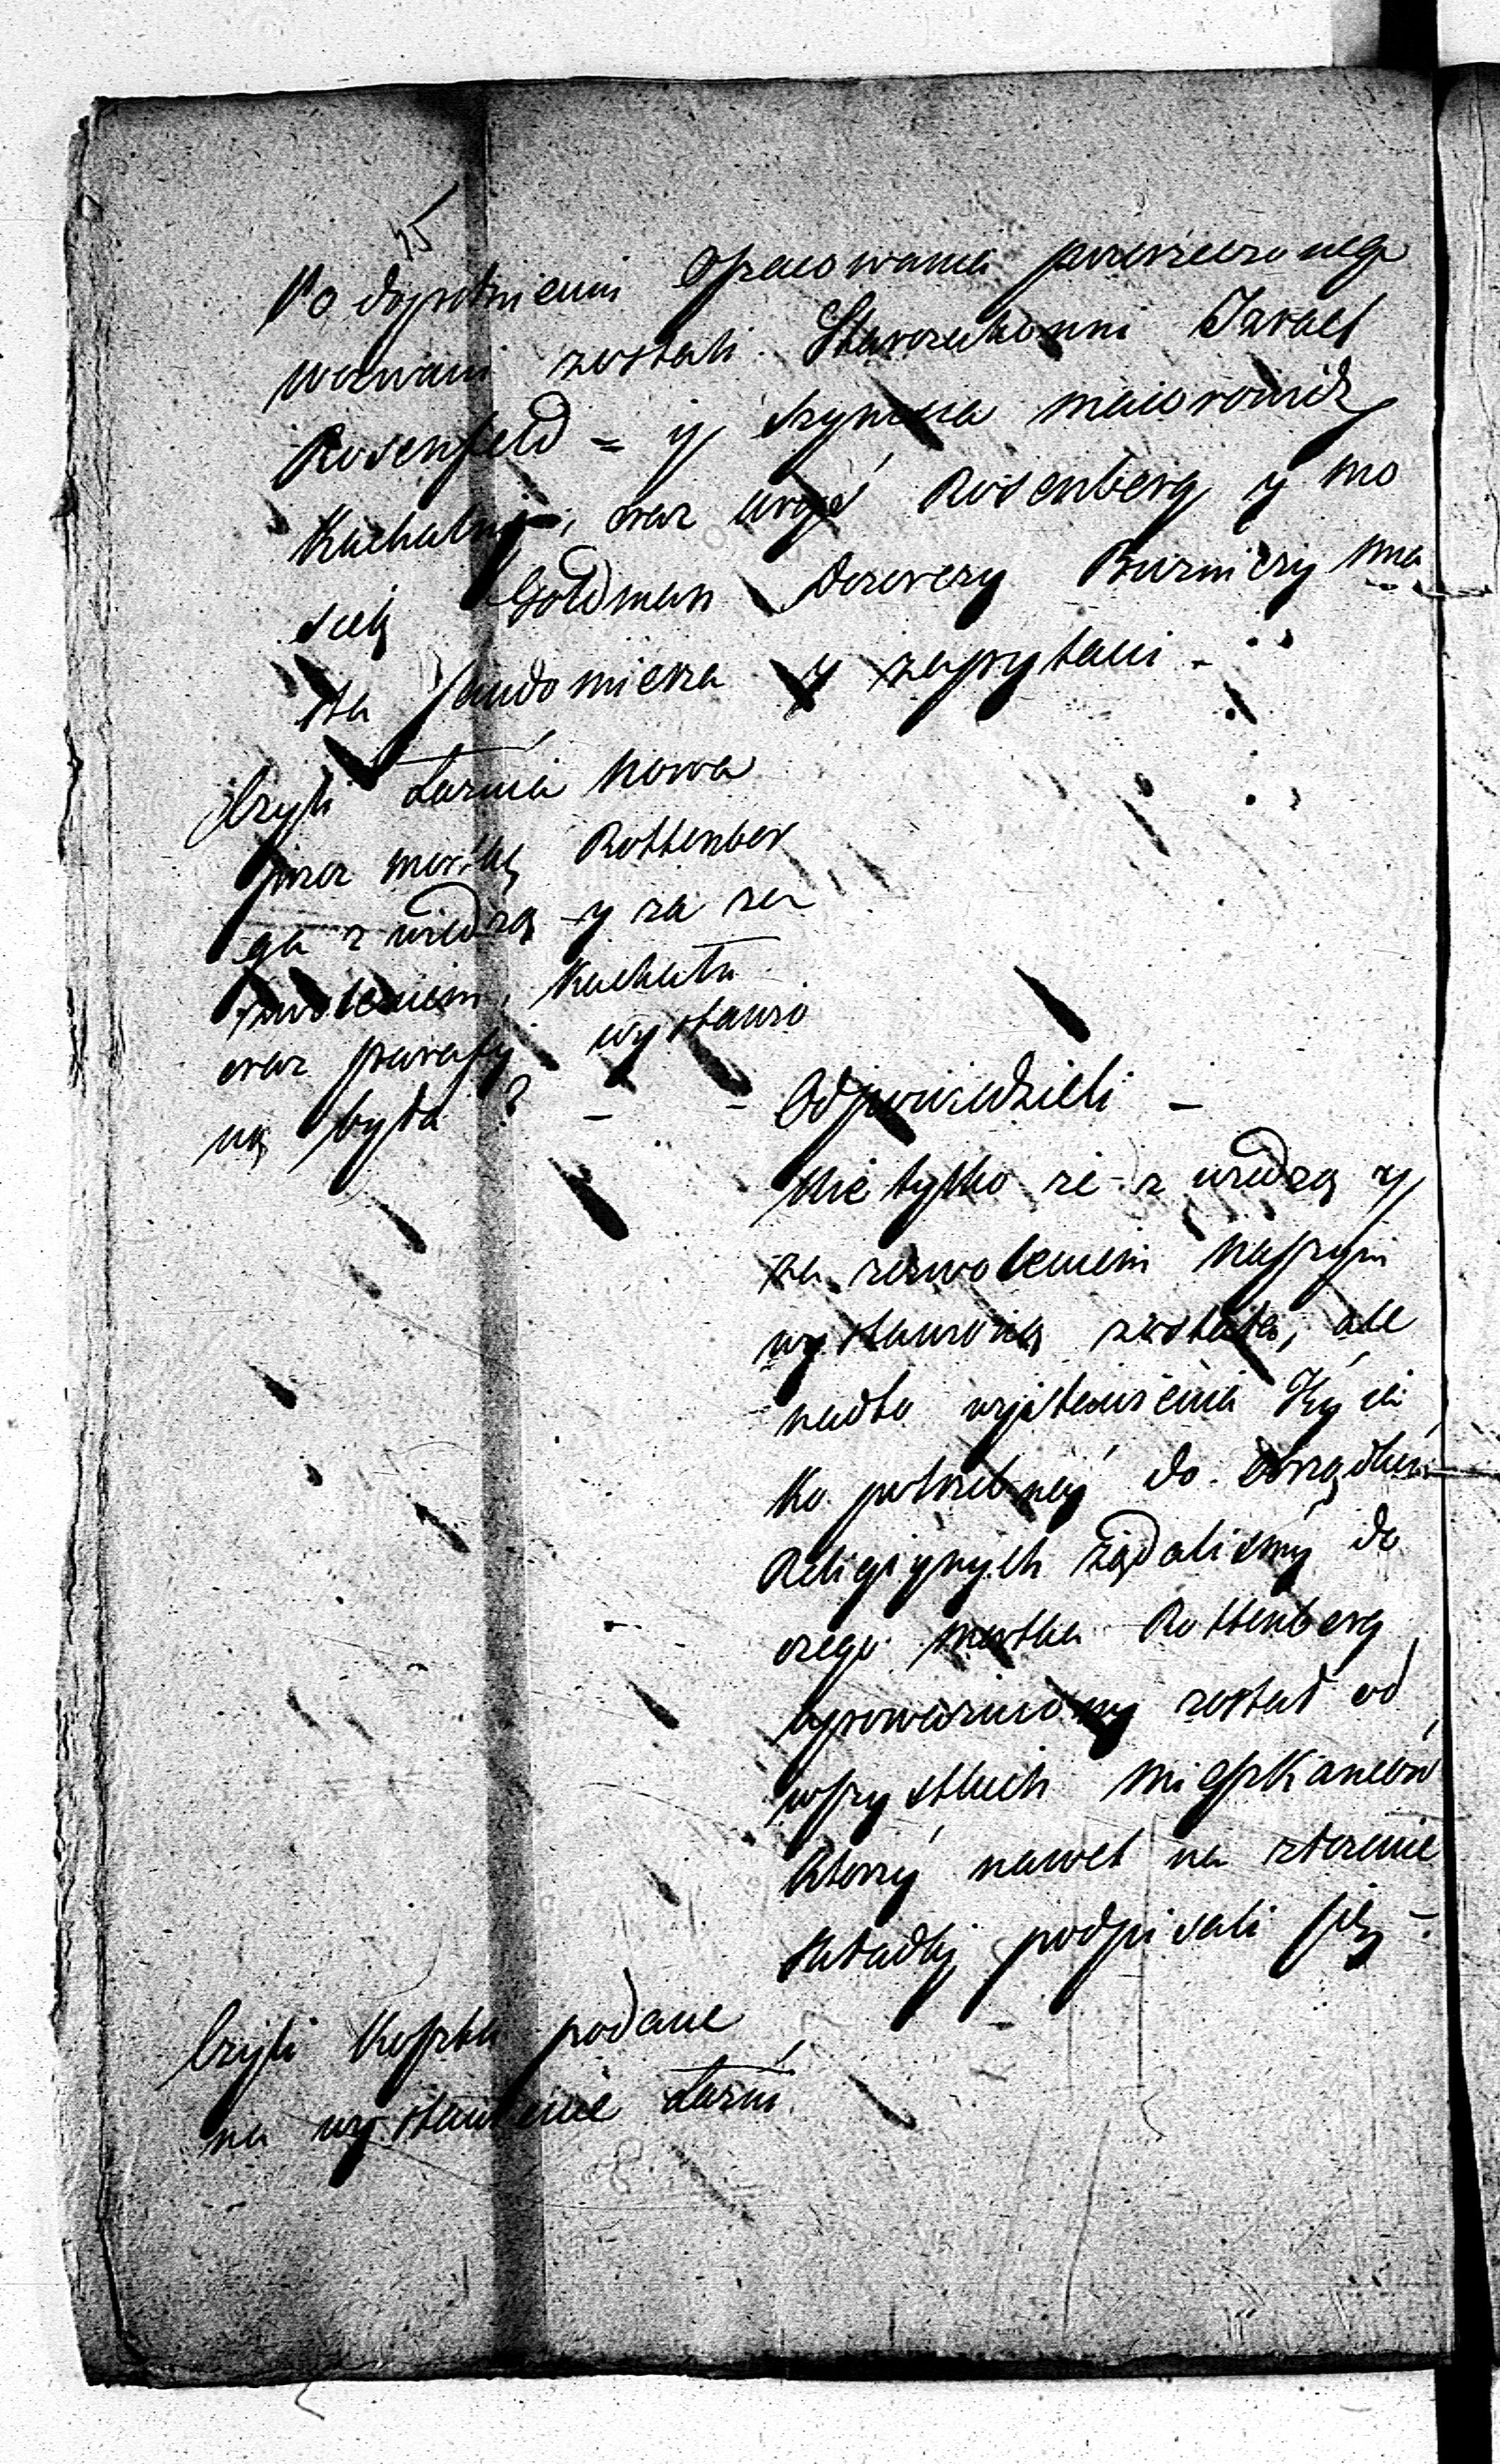 Po dopełnieniu opracowania powierzonego
wezwani zostali Starozakonni Izrael
Rosenfeld = y Szymcha maiorowicz
Kachalny, oraz Rosenberg y Mo
siek Goldman Dozorcy Buzniczy mia
sta Sandomierza y zapytani -
Czyli Łaznia nowa
przez Moska Rottenber
ga z wiedzą y za ze
zwoleniem, Kachału
oraz parafy wystawio
ną była ? -
- Odpowiedzieli -
Nie tylko że z wiedzą y
za zezwoleniem naszym
wystawioną została, ale
nadto wystawienia
ko potrzebney do obrządków
Religiynych żądalismy do
czego Moska Rottenberg
upoważniony został od
wszystkich Mieszkancow
Ktorzy nawet na złożenie
składki podpisali się -
Czyli Koszta podane
na wystawienie Łazni